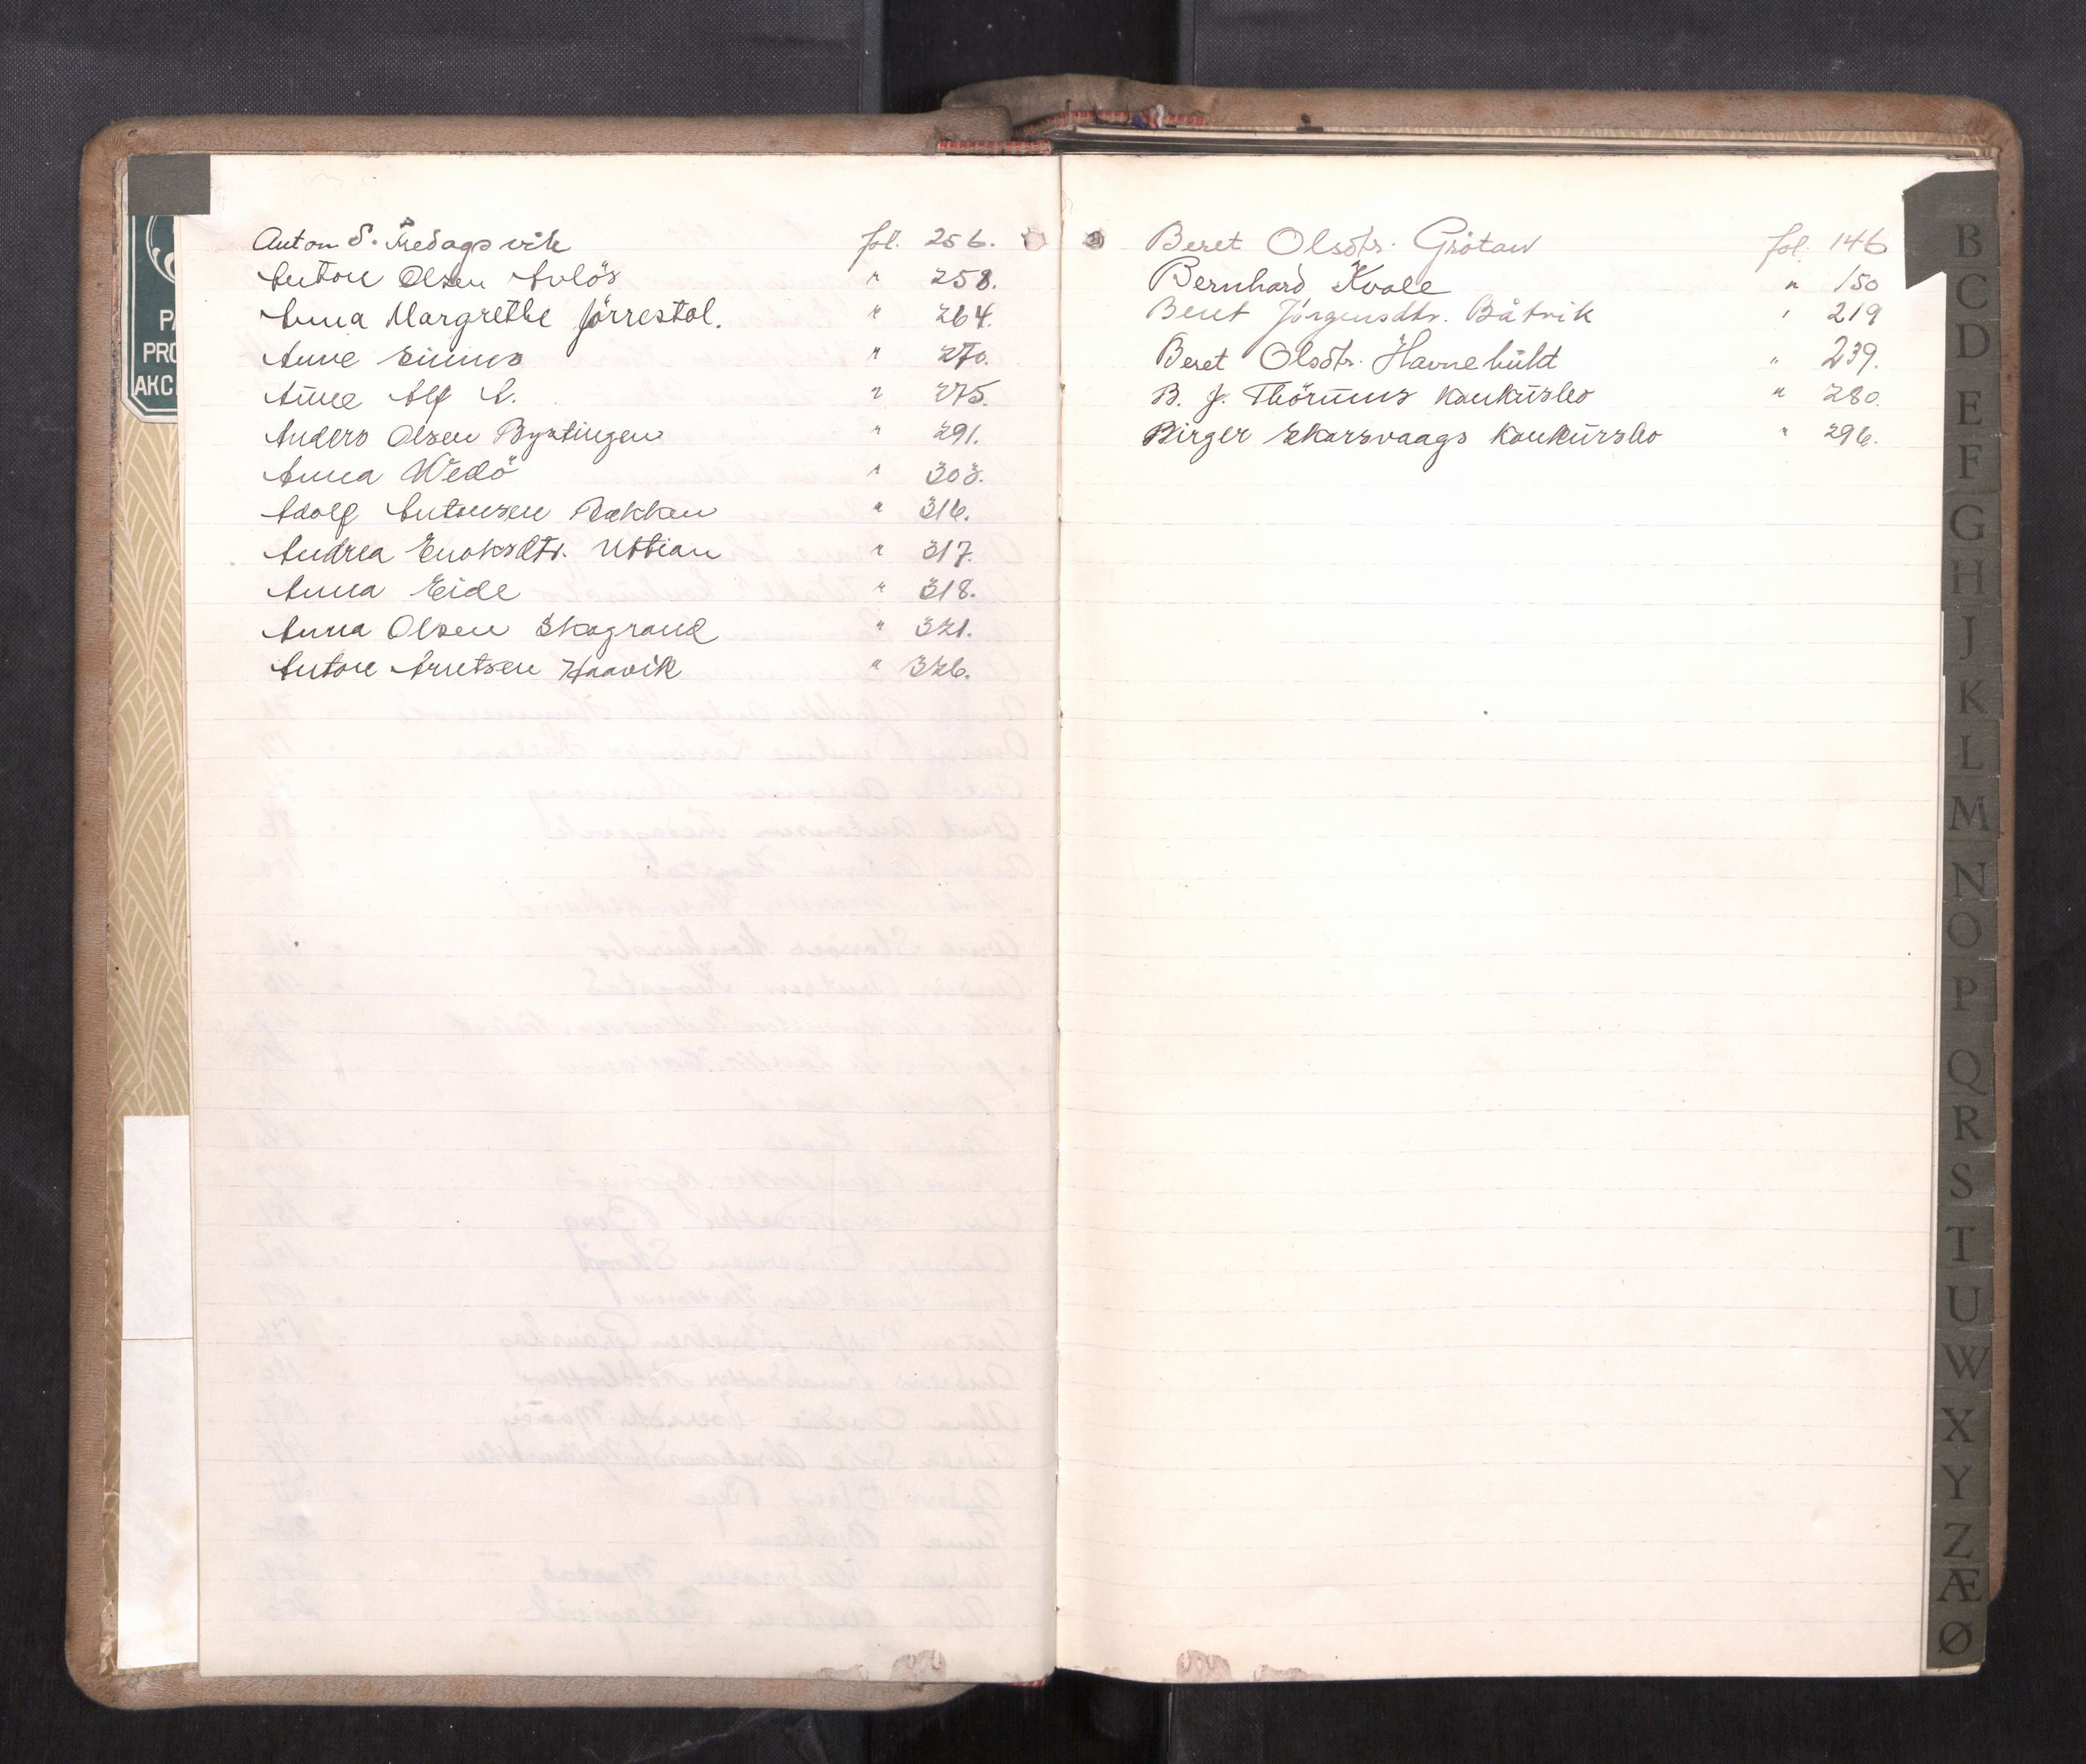 Anton S. Fredagsvik fol. 256.
Anton Olsen Avlös " 258.
Anna Margrethe Jörrestol. " 264.
Anne Einmo " 270.
Aune Alf A. " 275.
Anders Olsen Bystingen " 291.
Anna Wedö " 303.
Adolf Antonsen Bakkan " 316.
Andrea Enoksdtr. Uttian " 317.
Anna Eide " 318.
Anna Olsen Skogrand " 321.
Anton Arntsen Haavik " 326.
PA
PRO
AKC
Beret Olsdtr. Grötan fol. 146
Bernhard Kvale " 150
Beret Jörgensdtr. Båtvik " 219
Beret Olsdtr. Havnebukt " 239.
B. J. Thörums Konkursbo " 280.
Birger Skarsvaags Konkursbo " 296.
B
C
D
E
F
G
H
J
K
L
M
N
O
P
Q
R
S
T
U
W
X
Y
Z
Æ
Ø